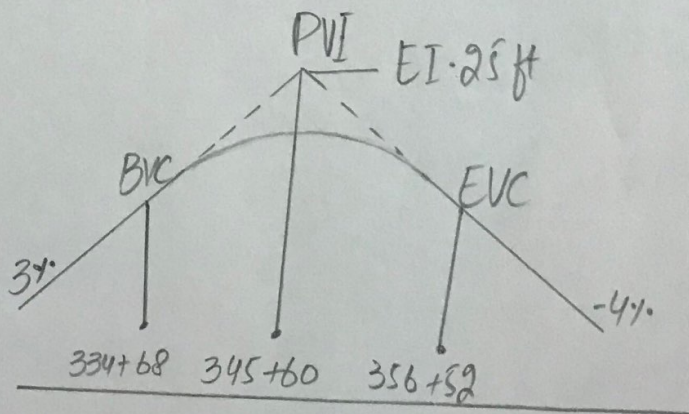 PVI
EI.25 ft
BVC
EVC
3%
-4%
334+68
345+60
356+52